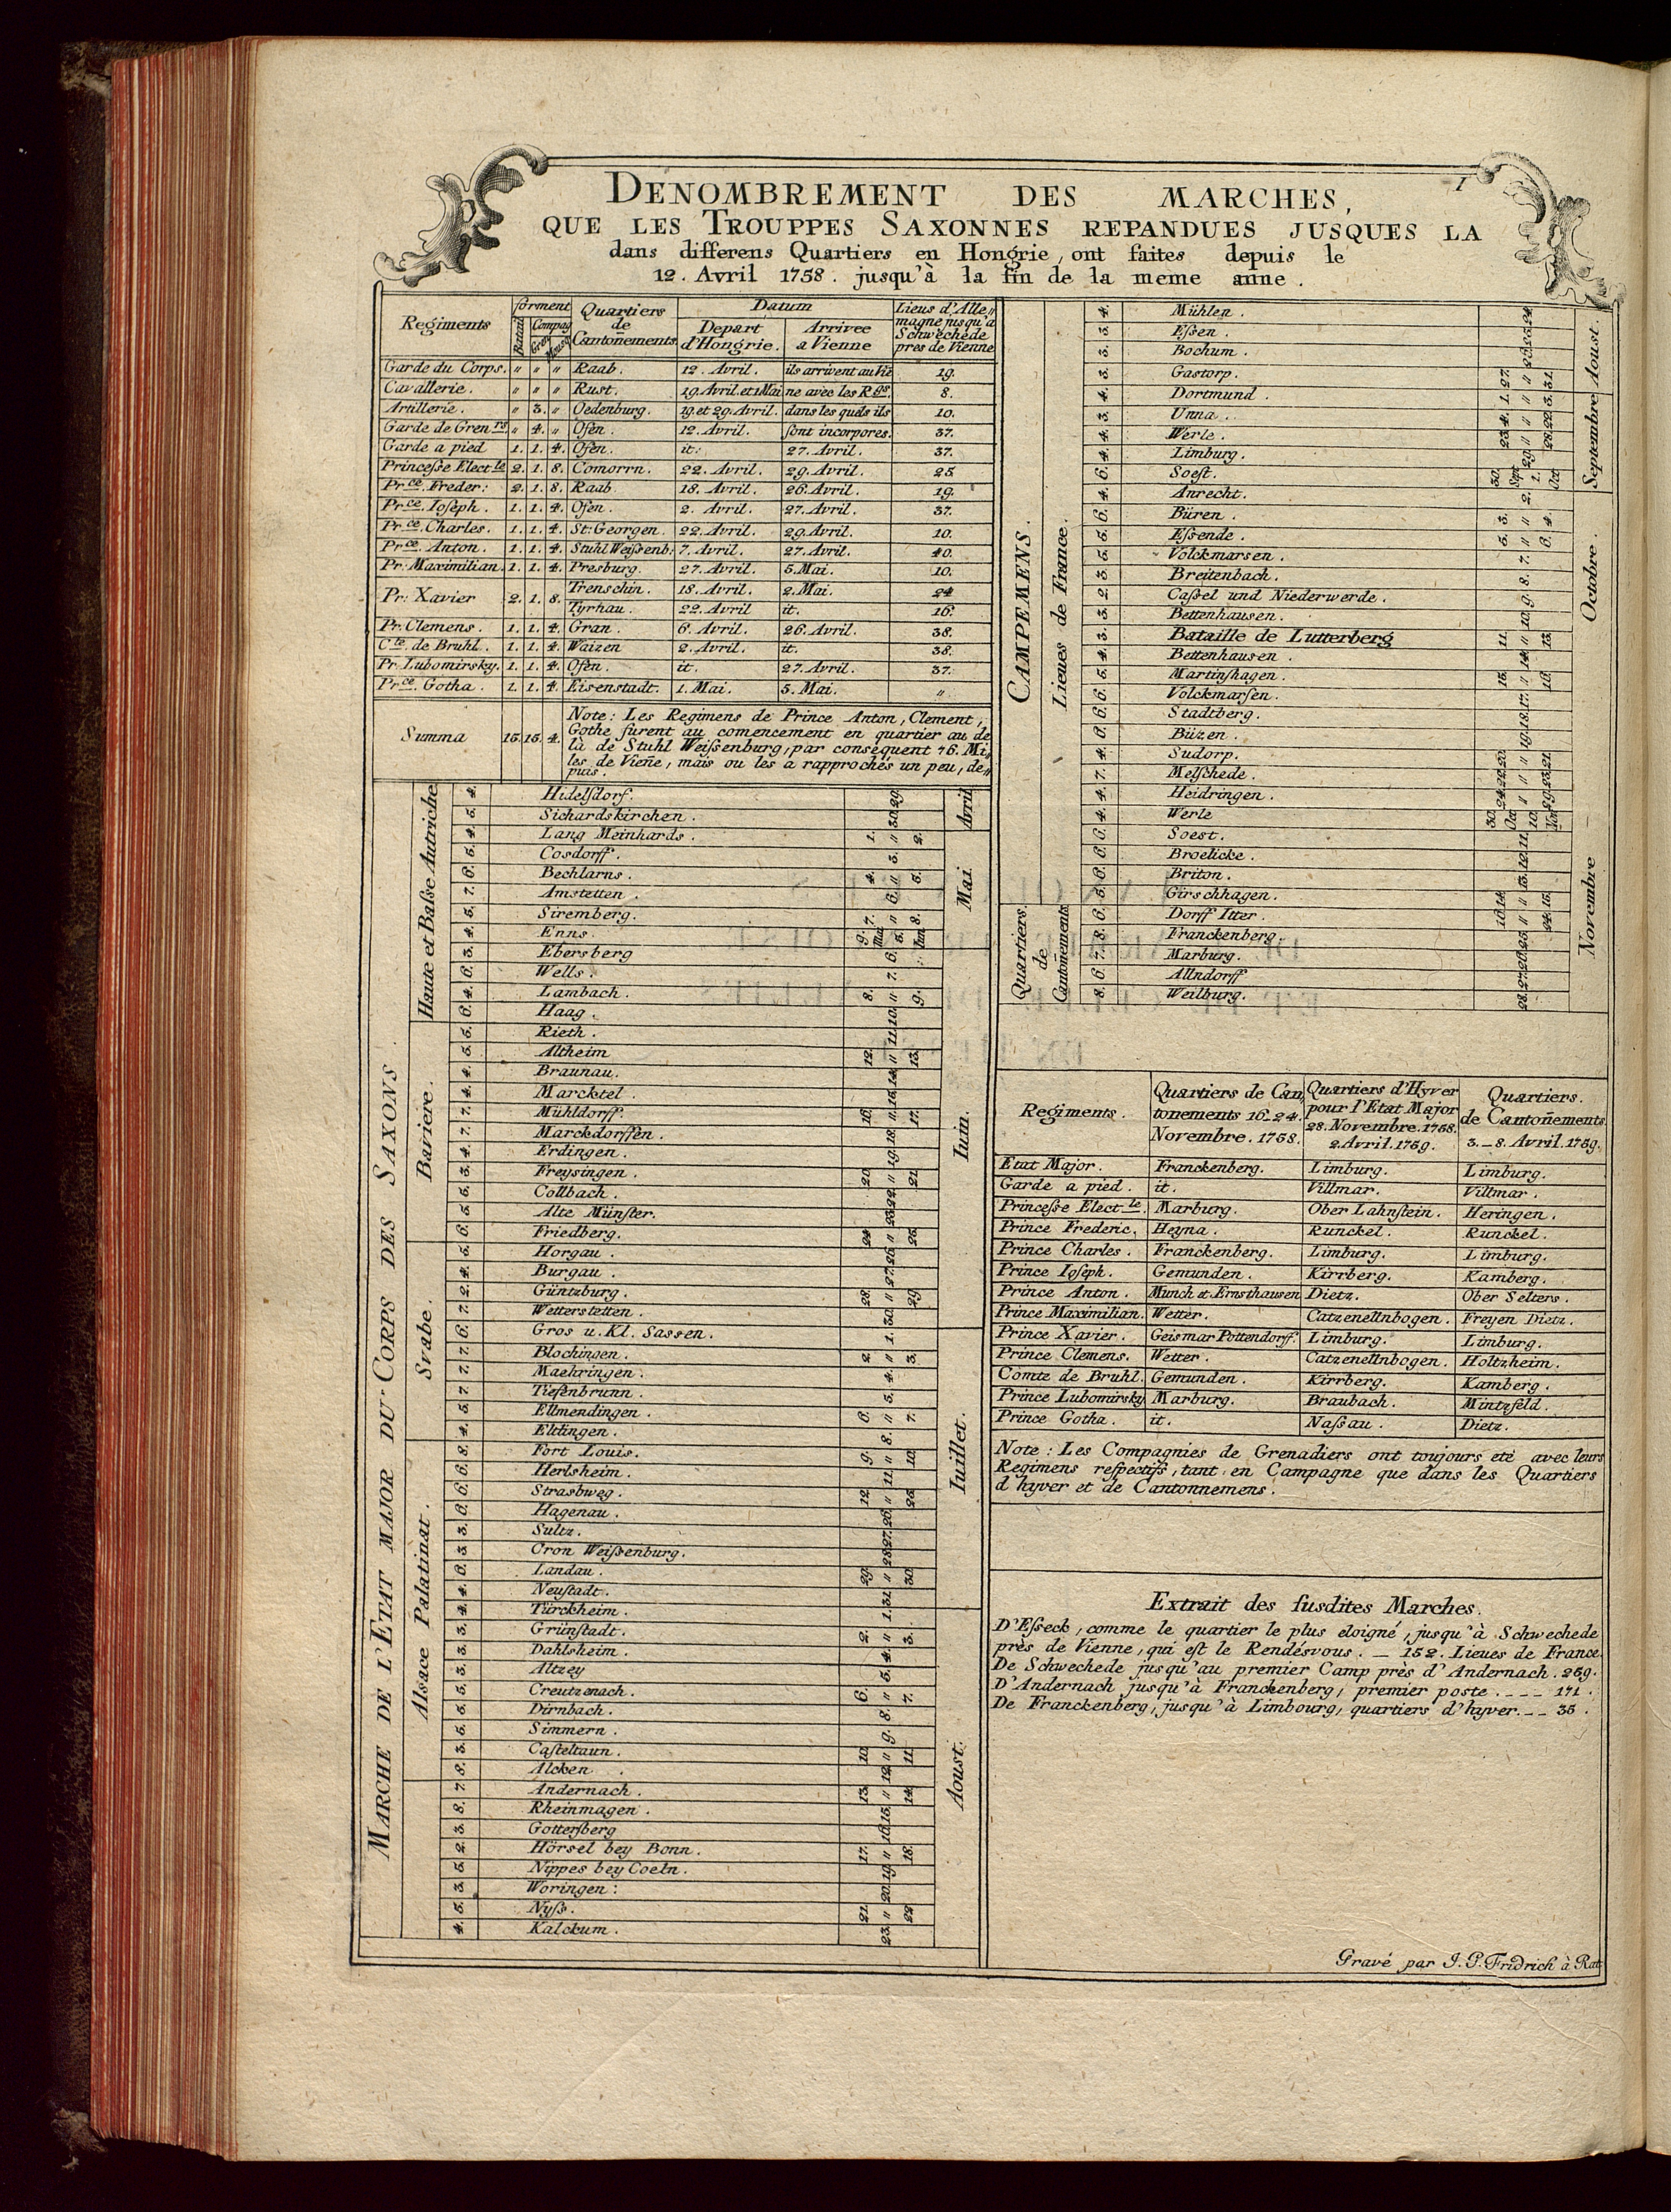 1
DENOMBREMENT DES MARCHES,
QUE LES TROUPPES SAXONNES REPANDUES JUSQUES LA
dans differens Quartiers en Hongrie, ont faites depuis le
12. Avril 1758. jusqu'à la fin de la meme anne.
Regiments forment Quartiers de Cantoñements Datum Lieus d'Alle„magne jusqu'a Schwechede pres de Vienne
Batail Compag Gren Mousq Depart d'Hongrie. Arrivee a Vienne
Garde du Corps. „ „ „ Raab. 12. Avril. ils arrivent au Vie 19.
Cavallerie. „ „ „ Rust. 19. Avril. et 1 Mai ne avec les Rgs. 8.
Artillerie. „ 3. „ Oedenburg. 19. et 29. Avril. dans les quels ils 10.
Garde de Gren rs „ 4. „ Ofen. 12. Avril. sont incorpores. 37.
Garde a pied 1. 1. 4. Ofen. it. 27. Avril. 37.
Princeſse Elect le 2. 1. 8. Comorrn. 22. Avril. 29. Avril. 25
Pr ce. Freder: 2. 1. 8. Raab 18. Avril. 26. Avril. 19.
Pr ce. Ioſeph. 1. 1. 4. Ofen. 2. Avril. 27. Avril. 37.
Pr ce. Charles. 1. 1. 4. St: Georgen. 22. Avril. 29. Avril. 10.
Pr ce. Anton. 1. 1. 4. Stuhl Weiſsenb. 7. Avril. 27. Avril. 40.
Pr. Maximilian. 1. 1. 4. Presburg. 27. Avril. 5. Mai. 10.
Pr: Xavier 2. 1. 8. Trenschin. 18. Avril. 2. Mai. 24
Tyrnau. 22. Avril it. 16.
Pr. Clemens. 1. 1. 4. Gran. 6. Avril. 26. Avril. 38.
C te. de Bruhl. 1. 1. 4. Waizen 2. Avril. it. 38.
Pr. Lubomirsky. 1. 1. 4. Ofen. it. 27. Avril. 37.
Pr ce. Gotha. 1. 1. 4. Eisenstadt. 1. Mai. 5. Mai. „
Summa 15. 15. 4.
Note: Les Regimens de Prince Anton, Clement,
Gothe furent au comencement en quartier au de
là de Stuhl Weiſsenburg, par consequent 76. Mi„
les de Vieñe, mais ou les a rapprochés un peu, de„
puis.
MARCHE DE L'ETAT MAJOR DU CORPS DES SAXONS
Haute et Baſse Autriche
4. Hidelſdorf. 29. Avril
5. Sichardskirchen. 30.
4. Lang Meinhards. 1. „ 2. Mai
5. Cosdorff. 3.
6. Bechlarns. 4. „ 5.
7. Amstetten. 6.
5. Siremberg. 7. „ 8.
4. Enns. 9. Mai 5. Iun.
3. Ebersberg 6.
6. Wells. 7.
4. Lambach. 8. „ 9.
6. Haag. 10.
Baviere.
5. Rieth. 11.
5. Altheim 12. „ 13.
4. Braunau. 14.
4. Marcktel. 15.
7. Mühldorff. 16. „ 17. Iuin.
7. Marckdorffen. 18.
4. Erdingen. 19.
3. Freysingen. 20. „ 21
5. Collbach. 22.
5. Alte Münſter. 23.
6. Friedberg. 24 „ 25.
Svabe.
5. Horgau. 26.
4. Burgau. 27.
2. Güntzburg. 28. „ 29
7. Wetterstetten. 30.
6. Gros u. Kl. Sassen. 1.
7. Blochingen. 2. „ 3.
7. Maehringen. 4.
7. Tiefenbrunn. 5.
5. Ellmendingen. 6. „ 7.
4. Eltlingen. 8. Iuillet.
Alsace Palatinat.
8. Fort Louis. 9. „ 10.
6. Herlsheim. 11.
6. Strasbweg. 12. „ 25.
6. Hagenau. 26.
3. Sultz. 27.
3. Cron Weiſsenburg. 28.
6. Landau. 29. „ 30.
4. Neuſtadt. 31.
4. Türckheim. 1.
3. Grünſtadt. 2. „ 3.
3. Dahlsheim. 4.
3. Altzey 5.
5. Creutzenach. 6. „ 7.
5. Dirnbach. 8.
5. Simmern. 9.
3. Caſteltaun. 10. „ 11.
8. Alcken. 12. Aoust.
7. Andernach. 13. „ 14.
8. Rheinmagen. 15.
3. Gotterſberg 16.
2. Hörsel bey Bonn. 17. „ 18.
5. Nippes bey Coeln. 19.
3. Woringen: 20.
5. Nyſs. 21. „ 22
4. Kalckum. 23.
CAMPEMENS.
Lieues de France.
4. Mühlen. 24. Aoust
3. Eſsen. 25.
3. Bochum. 26.
3. Gastorp. 27. „ 31.
4. Dortmund. 1. „ 3. Septembre
3. Unna. 4. „ 22.
4. Werle. 23. „ 28.
4. Limburg. 29.
6. Soeſt. 30. Sept 1. Oct
4. Anrecht. 2.
6. Büren. 3. „ 4. Octobre.
5. Eſsende. 5. „ 6.
5. Volckmarsen. 7.
3. Breitenbach. 8.
2. Caſsel und Niederwerde. 9.
3. Bettenhausen. 10.
3. Bataille de Lutterberg 11. „ 13.
4. Bettenhausen. 14.
5. Martinſhagen. 15. „ 16.
6. Volckmarſen. 17.
6. Stadtberg. 18.
6. Büzen. 19.
4. Sudorp. 20. „ 21.
7. Melſchede. 22. „ 23.
4. Heidringen. 24. „ 29.
4. Werle 30. Oct 10. Nov
6. Soest. 11.
6. Broelicke. 12. Novembre
6. Briton. 13.
5. Girschhagen. 14. „ 15.
Quartiers de Cantoñements.
6. Dorff Itter. 16. „ 24.
8. Franckenberg. 25.
7. Marburg. 26.
6. Allndorff 27.
8. Weilburg. 28.
Regiments. Quartiers de Can„tonements 16_24. Novembre. 1758. Quartiers d'Hyver pour l'Etat Major 28. Novembre. 1758. 2. Avril. 1759. Quartiers. de Cantoñements 3._8. Avril. 1759.
Etat Major. Franckenberg. Limburg. Limburg.
Garde a pied. it. Villmar. Villmar.
Princeſse Elect le. Marburg. Ober Lahnſtein. Heringen.
Prince Frederic. Heyna. Runckel. Runckel.
Prince Charles. Franckenberg. Limburg. Limburg.
Prince Ioſeph. Gemunden. Kirrberg. Kamberg.
Prince Anton. Münch et Ernsthausen Dietz. Ober Selters.
Prince Maximilian. Wetter. Catzenellnbogen. Freyen Dietz.
Prince Xavier. Geismar Pottendorff. Limburg. Limburg.
Prince Clemens. Wetter. Catzenellnbogen. Holtzheim.
Comte de Bruhl. Gemunden. Kirrberg. Kamberg.
Prince Lubomirsky Marburg. Braubach. Mintzfeld.
Prince Gotha. it. Naſsau. Dietz.
Note: Les Compagnies de Grenadiers ont toujours eté avec leurs
Regimens reſpectifs, tant en Campagne que dans les Quartiers
d'hyver et de Cantonnemens.
Extrait des ſusdites Marches.
D'Eſseck, comme le quartier le plus eloigné, jusqu'à Schwechede
près de Vienne, qui eſt le Rendésvous. _ 152. Lieues de France.
De Schwechede jusqu'au premier Camp près d'Andernach. 259.
D'Andernach jusqu'à Franckenberg, premier poste. _ _ _ _ 171.
De Franckenberg, jusqu'à Limbourg, quartiers d'hyver. _ _ 35.
Gravé par J. P. Fridrich à Rat